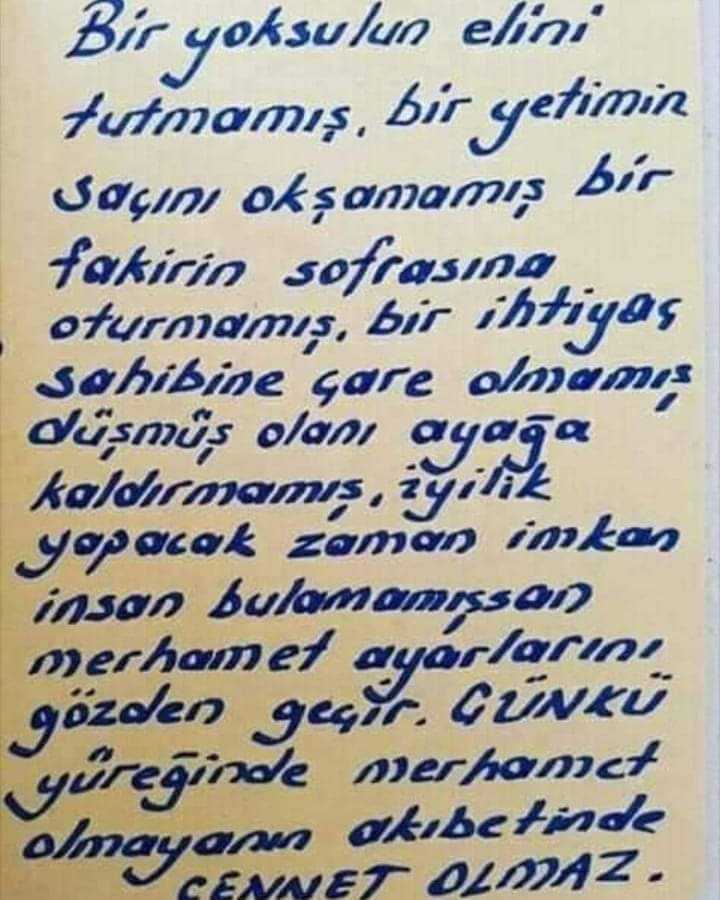 Bir yoksulun elini
tutmamış, bir yetimin
saçını okşamamış bir
fakirin sofrasına
oturmamış, bir ihtiyaç
sahibine çare olmamış
düşmüş olanı ayağa
kaldırmamış, iyilik
yapacak zaman imkan
insan bulamamışsan
merhamet ayarlarını
gözden geçir. ÇÜNKÜ
yüreğinde merhamet
olmayanın akıbetinde
CENNET OLMAZ.